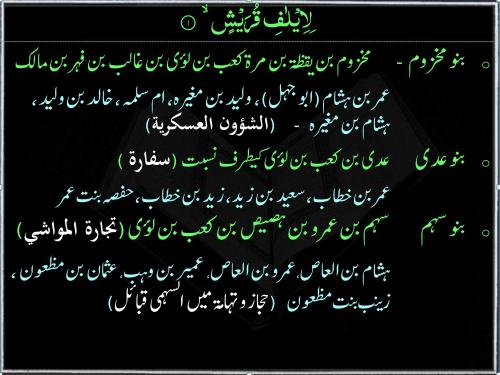 لِاِيْلٰفِ قُرَيْشٍ ۙ ①
بنو مخزوم - مخزوم بن یقظۃ بن مرۃ کعب بن لؤی بن غالب بن فہر بن مالک
عمر بن ہشام (ابو جہل) ، ولید بن مغیرہ، ام سلمہ ، خالد بن ولید ،
ہشام بن مغیرہ - (الشؤون العسكرية)
بنو عدی عدی بن کعب بن لؤی کیطرف نسبت (سفارة)
عمر بن خطاب ، سعید بن زید ، زید بن خطاب ، حفصہ بنت عمر
بنو سہم سہم بن عمرو بن ہصیص بن کعب بن لؤی (تجارة المواشي)
ہشام بن العاص، عمرو بن العاص، عمیر بن وہب، عثمان بن مظعون ،
زینب بنت مظعون (حجاز و تہامۃ میں السہمی قبائل)